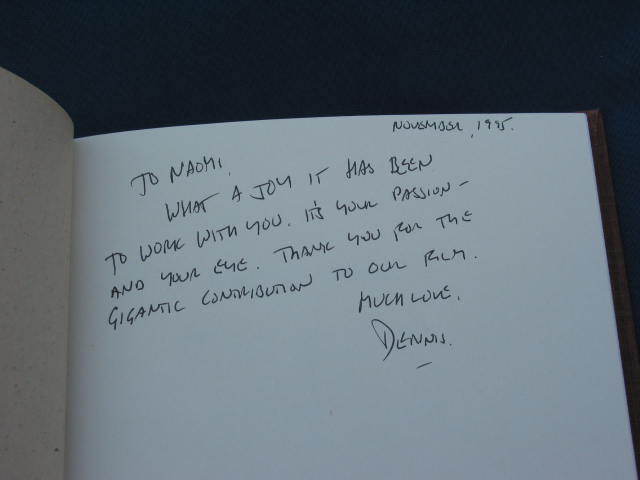 NOVEMBER, 1995.
TO NAOMI.
WHAT A JOY IT HAS BEEN
TO WORK WITH YOU. IT'S YOUR PASSION -
AND YOUR EYE. THANK YOU FOR THE
GIGANTIC CONTRIBUTION TO OUR FILM.
MUCH LOVE.
DENNIS.